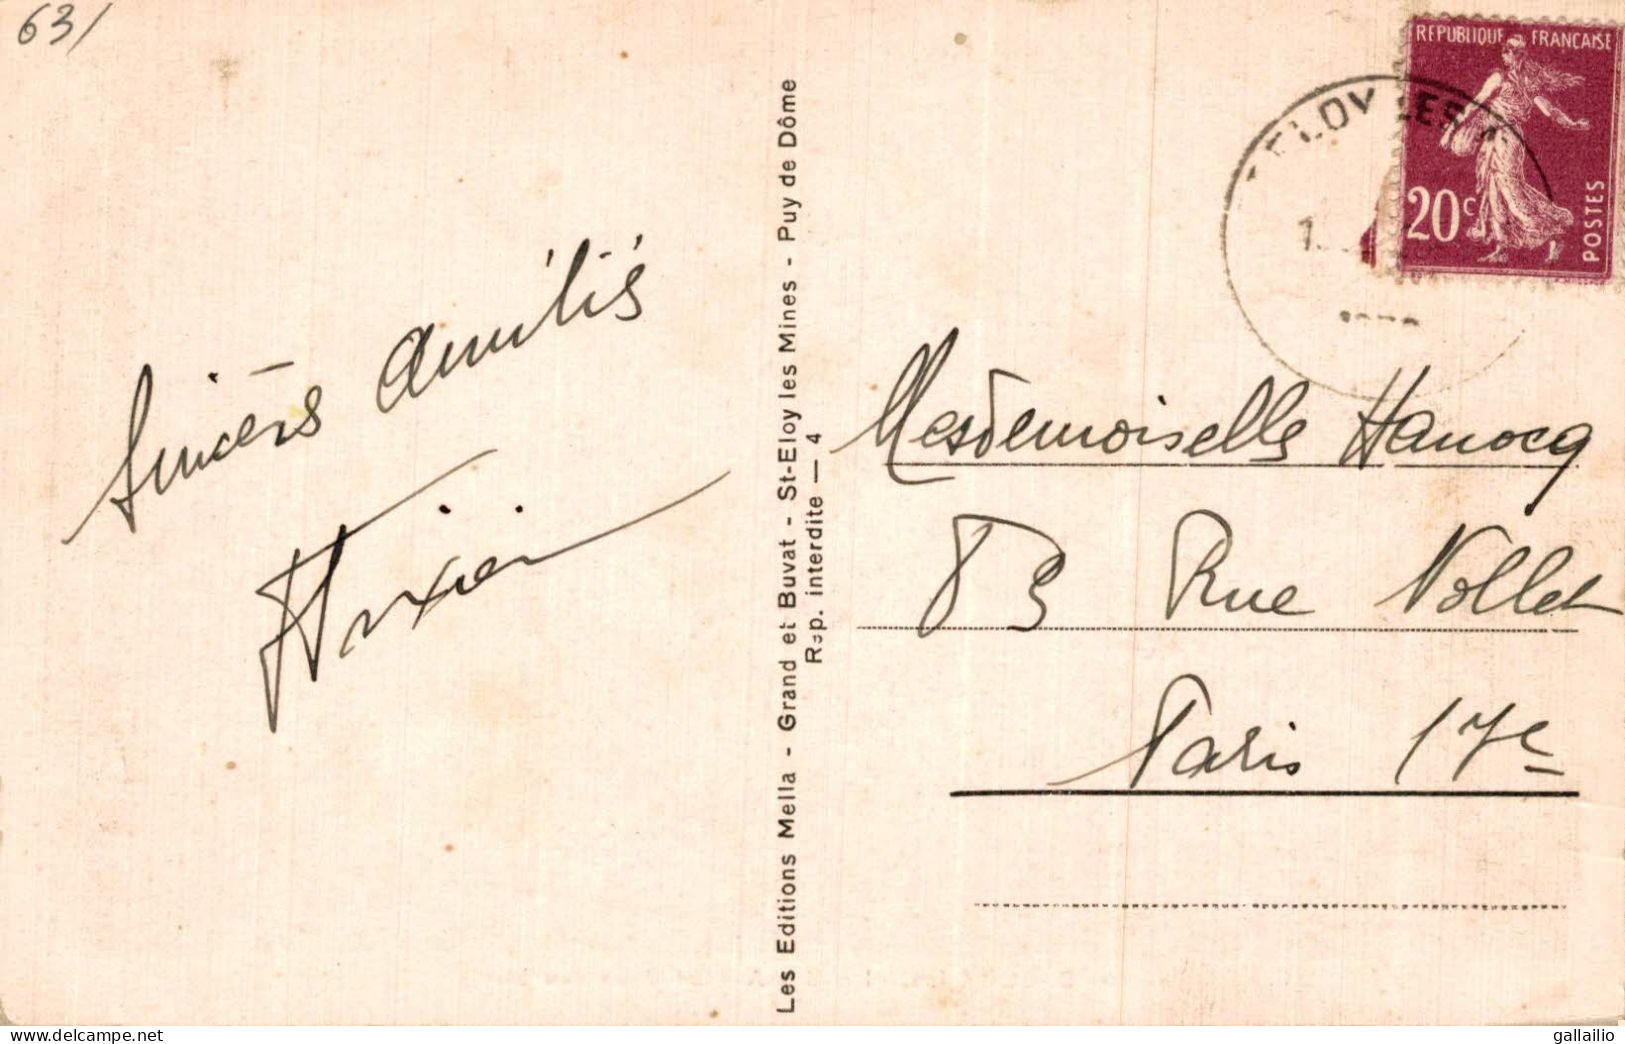 63/
REPUBLIQUE FRANCAISE
20c
POSTES
ELOY LES
Sincères Amitiés
Les Editions Mella - Grand et Buvat - St-Eloy les Mines - Puy de Dôme
Rep. interdite — 4
Mesdemoiselle Hanocq
83 Rue Nollet
Paris 17e
gallailio